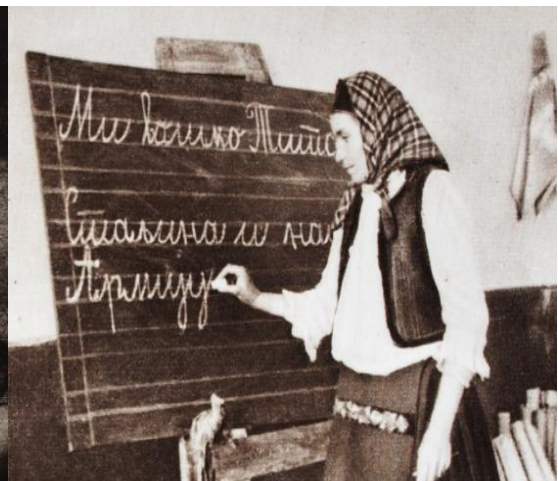 Ми волимо Тита
Стаљина и на
Армију